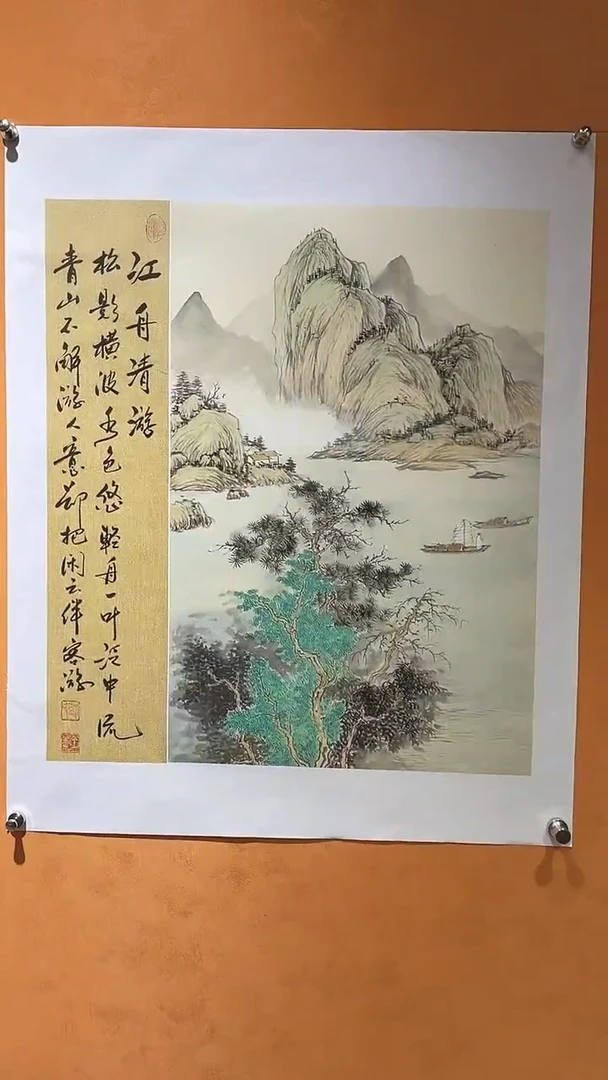 江舟清游
松影横波秀色悠轻舟一叶泛中流
青山不解游人意却把闲云伴客游